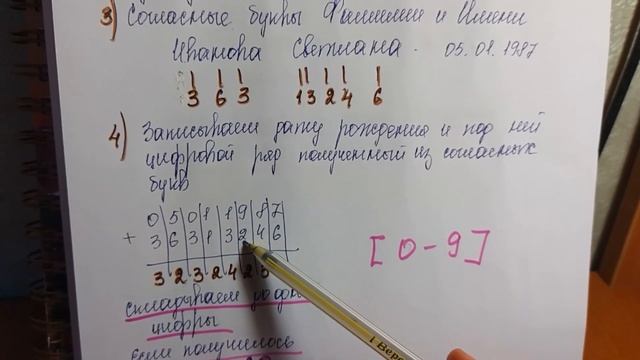 3) Согласные буквы Фамилии и Имени
Иванова Светлана - 05.01.1987
3 6 3 1 3 2 4 6
4) Записываем дату рождения и под ней
цифровой ряд полученный из согласных
букв
0 5 0 1 1 9 8 7
+ 3 6 3 1 3 2 4 6
3 2 3 2 4 2 3
[0-9]
складываем
цифры
Если получилось